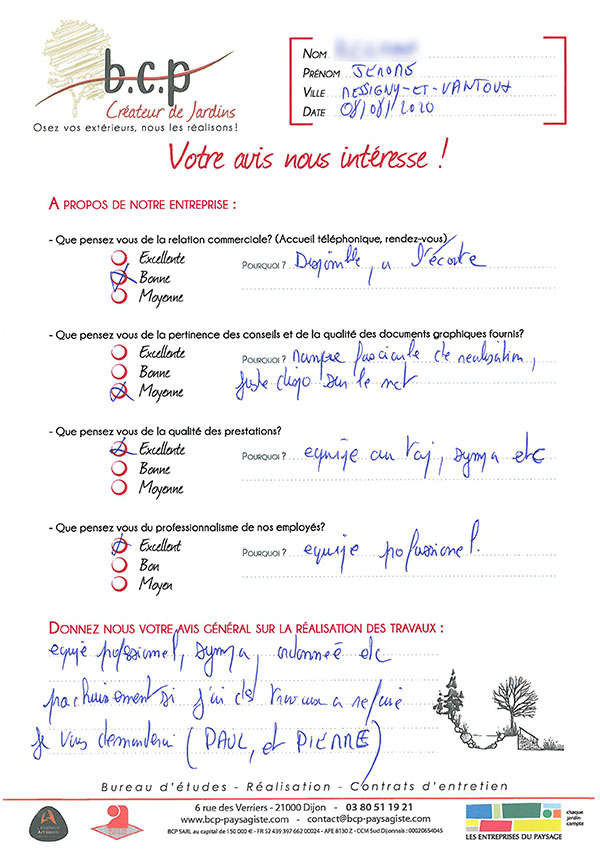 b.c.p
Créateur de Jardins
Osez vos extérieurs, nous les réalisons!
NOM
PRÉNOM JEROME
VILLE MESSIGNY-ET-VANTOUX
DATE 08/08/2020
Votre avis nous intéresse !
A PROPOS DE NOTRE ENTREPRISE :
- Que pensez vous de la relation commerciale? (Accueil téléphonique, rendez-vous)
Excellente
Bonne
Moyenne
POURQUOI ? Disponible, a l'écoute
- Que pensez vous de la pertinence des conseils et de la qualité des documents graphiques fournis?
Excellente
Bonne
Moyenne
POURQUOI ? manque fascicule de realisation,
juste dispo sur le net
- Que pensez vous de la qualité des prestations?
Excellente
Bonne
Moyenne
POURQUOI ? equipe au taf, sympa etc
- Que pensez vous du professionnalisme de nos employés?
Excellent
Bon
Moyen
POURQUOI ? equipe pofessionel.
DONNEZ NOUS VOTRE AVIS GÉNÉRAL SUR LA RÉALISATION DES TRAVAUX :
equipe professionel, sympa, ordonneé etc
prochainement si j'ai des travaux a refaire
je vous demanderai (PAUL, et PIERRE)
Bureau d'études - Réalisation - Contrats d'entretien
6 rue des Verriers - 21000 Dijon - 03 80 51 19 21
www.bcp-paysagiste.com - contact@bcp-paysagiste.com
BCP SARL au capital de 150 000 € - FR 52 439 397 662 00024 - APE 8130 Z - CCM Sud Dijonnais : 00020654045
chaque
jardin
compte
LES ENTREPRISES DU PAYSAGE